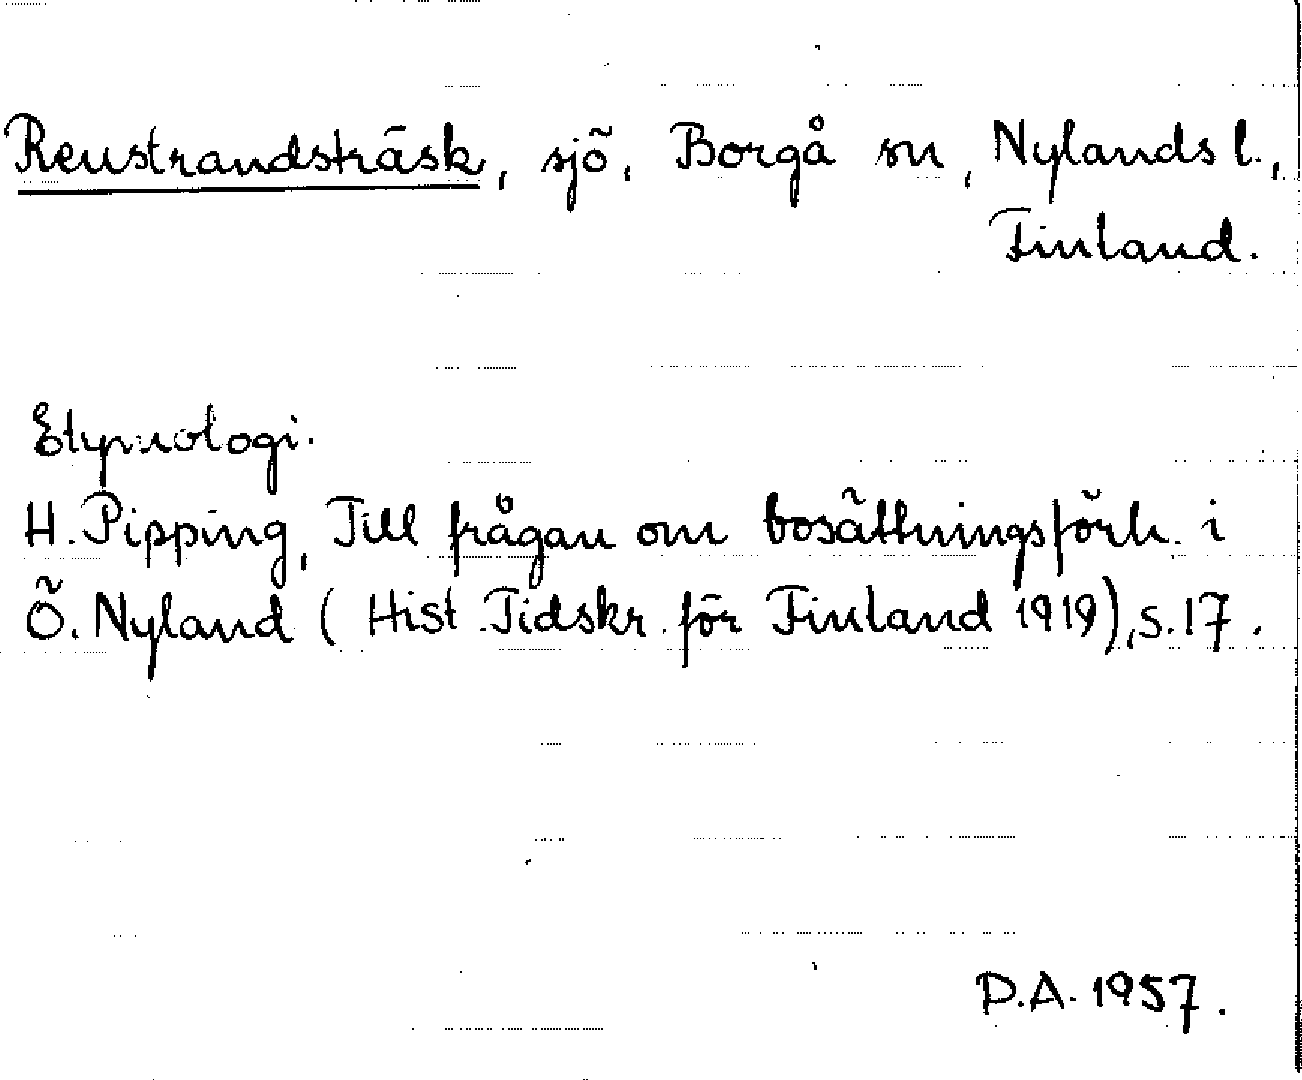 Renstrandsträsk, sjö, Borgå sn, Nylands l.,
Finland.
Etymologi.
H. Pipping, Till frågan om bosättningsförh. i
Ö. Nyland (Hist. Tidskr. för Finland 1919), s. 17.
P.A. 1957.